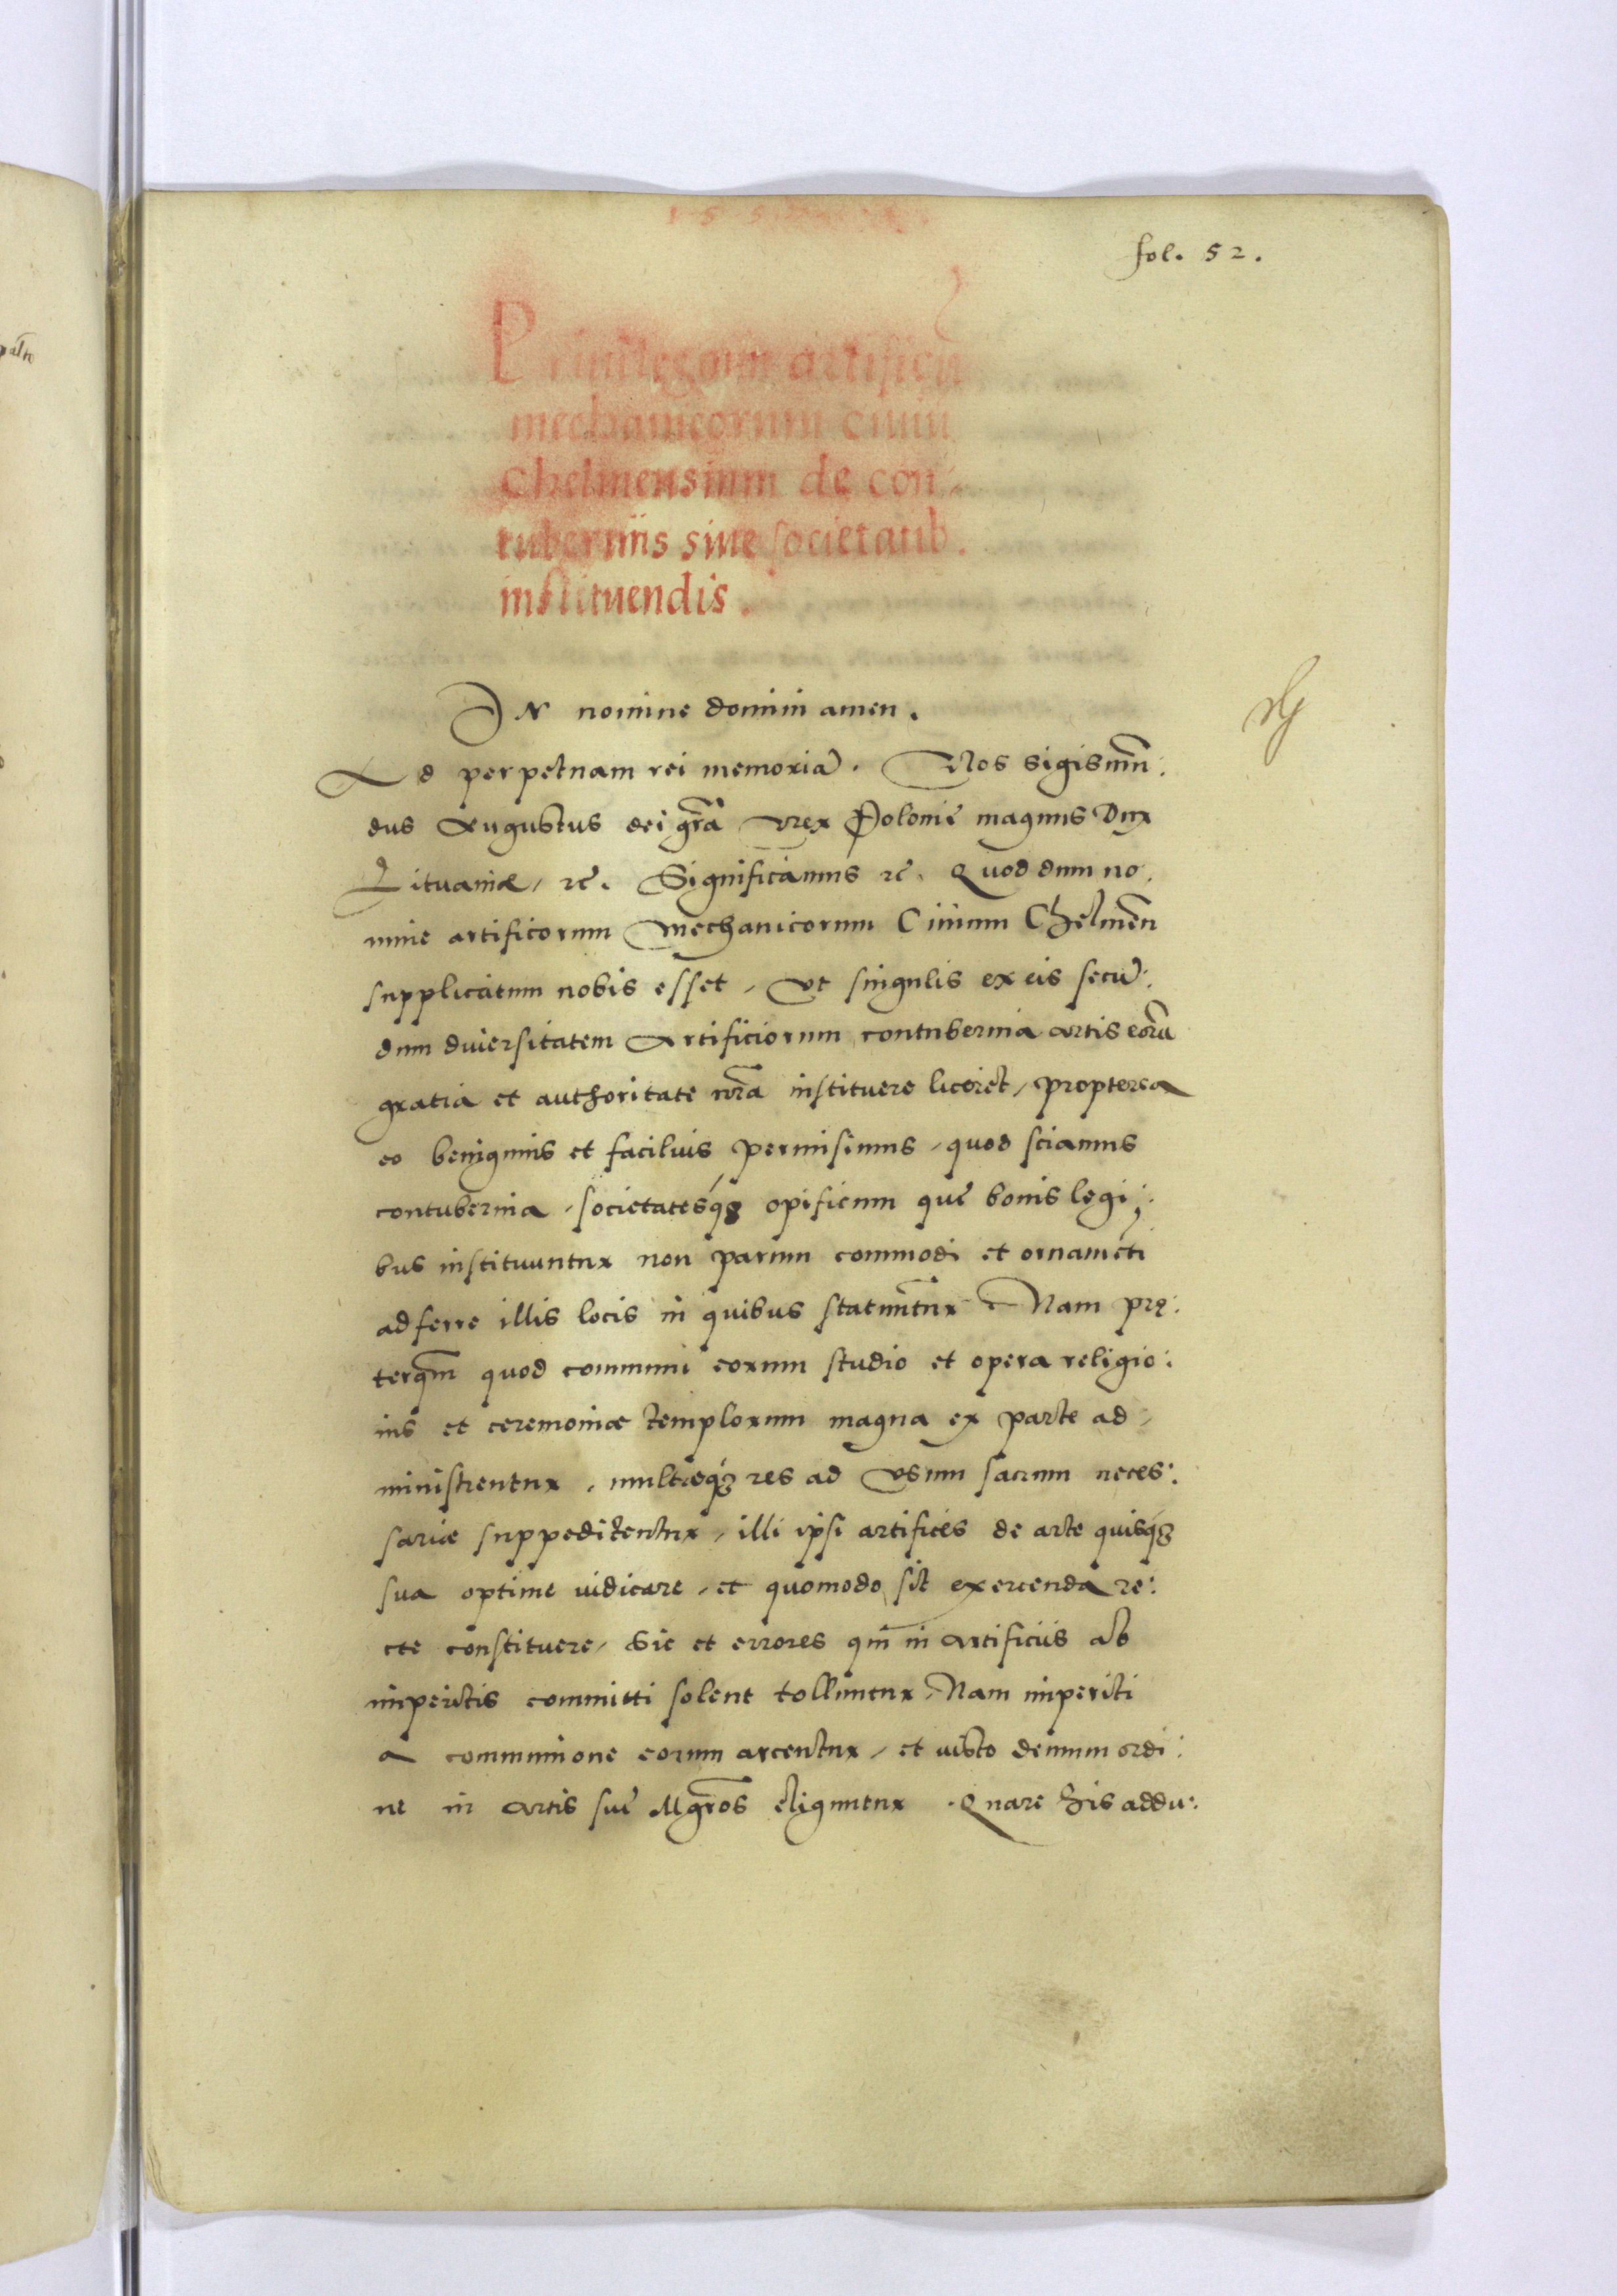 fol. 52.
Priuilegium artificũ
mechanicorum ciuiũ
Chelmensium de con-
tuberniis siue societatib.
instituendis.
IN nomine domini amen.
Ad perpetuam rei memoriã. Nos Sigismũn:
dus Augustus dei grã Rex Polonie magnus Dux
Lituaniæ, ꝛc. Significamus ꝛc. Quod dum no.
mine artificorum Mechanicorum Ciuium Chelmeñ
supplicatum nobis esset, Vt singulis ex eis secũ:
dum diuersitatem Artificiorum contubernia artis eorũ
gratia et authoritate nrã instituere liceret, propterea
eo benignius et facilius permisimus, quod sciamus
contubernia, societatesq́ꝫ opificum que bonis legi:
bus instituuntur non parum commodi et ornamẽti
adferre illis locis in quibus statuũtur. Nam prę:
terq̃m quod communi eorum studio et opera religio:
nis et ceremoniæ templorum magna ex parte ad,
ministrentur, multæq́ꝫ res ad Vsum sacrum neces:
sariæ suppeditentur, illi ipsi artifices de arte quisq́ꝫ
sua optime iudicare, et quomodo sit exercenda re:
cte constituere, Sic et errores qui in Artificiis ab
imperitis committi solent tolluntur, Nam imperiti
a communione eorum arcentur, et iusto demum ordi:
ne in Artis sue Mgrõs eliguntur. Quare his addu: